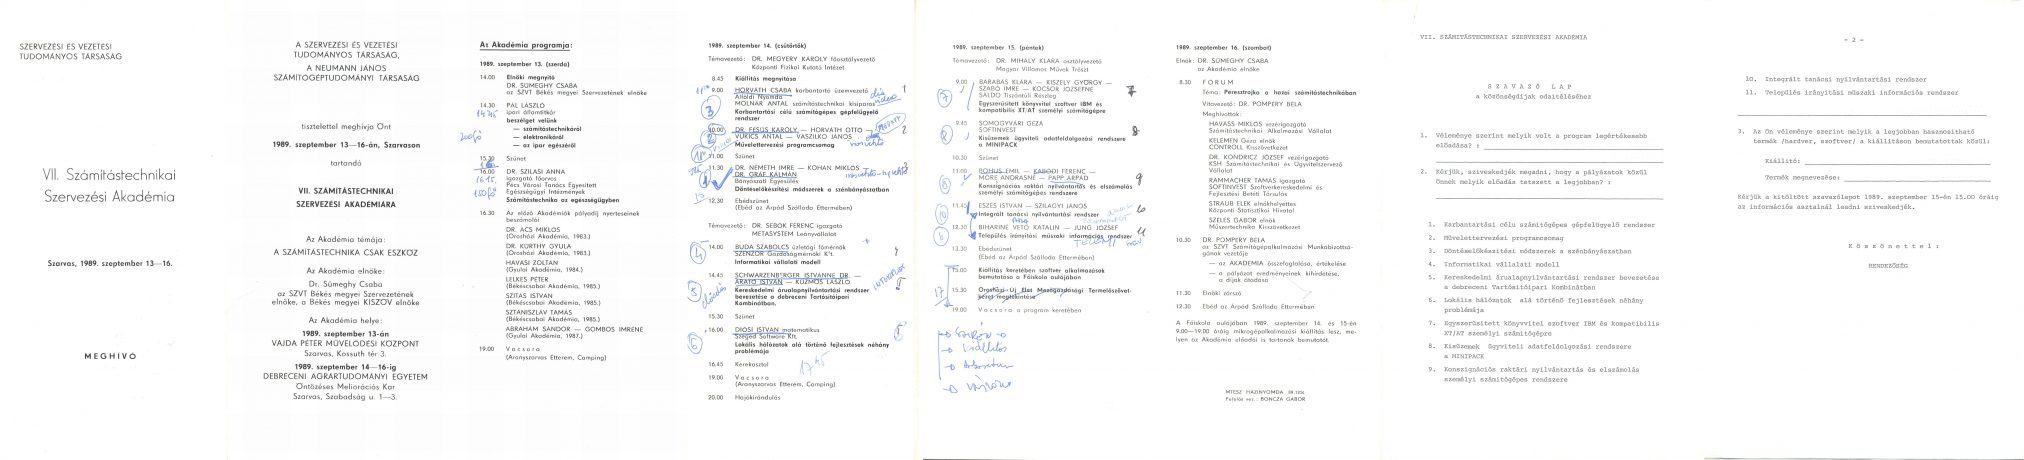 SZERVEZÉSI ÉS VEZETÉSI
TUDOMÁNYOS TÁRSASÁG
VII. Számítástechnikai
Szervezési Akadémia
Szarvas, 1989. szeptember 13—16.
MEGHÍVÓ
A SZERVEZÉSI ÉS VEZETÉSI
TUDOMÁNYOS TÁRSASÁG,
A NEUMANN JÁNOS
SZÁMÍTÓGÉPTUDOMÁNYI TÁRSASÁG
tisztelettel meghívja Önt
1989. szeptember 13—16-án, Szarvason
tartandó
VII. SZÁMÍTÁSTECHNIKAI
SZERVEZÉSI AKADÉMIÁRA
Az Akadémia témája:
A SZÁMÍTÁSTECHNIKA CSAK ESZKÖZ
Az Akadémia elnöke:
Dr. Sümeghy Csaba
az SZVT Békés megyei Szervezetének
elnöke, a Békés megyei KISZÖV elnöke
Az Akadémia helye:
1989. szeptember 13-án
VAJDA PÉTER MŰVELŐDÉSI KÖZPONT
Szarvas, Kossuth tér 3.
1989. szeptember 14—16-ig
DEBRECENI AGRÁRTUDOMÁNYI EGYETEM
Öntözéses Meliorációs Kar
Szarvas, Szabadság u. 1—3.
Az Akadémia programja:
1989. szeptember 13. (szerda)
14.00 Elnöki megnyitó
DR. SÜMEGHY CSABA
az SZVT Békés megyei Szervezetének
elnöke
14.30 PÁL LÁSZLÓ
14.45 ipari államtitkár
beszélget velünk
— számítástechnikáról
— elektronikáról
— az ipar egészéről
15.30 Szünet
16.00 DR. SZILASI ANNA
16.15 igazgató főorvos
Pécs Városi Tanács Egyesített
Egészségügyi Intézmények
Számítástechnika az egészségügyben
16.30 Az előző Akadémiák pályadíj nyerteseinek
beszámolói
DR. ÁCS MIKLÓS
(Orosházi Akadémia, 1983.)
DR. KÜRTHY GYULA
(Orosházi Akadémia, 1983.)
HAVASI ZOLTÁN
(Gyulai Akadémia, 1984.)
LELKES PÉTER
(Békéscsabai Akadémia, 1985.)
SZITÁS ISTVÁN
(Békéscsabai Akadémia, 1985.)
SZTANISZLÁV TAMÁS
(Békéscsabai Akadémia, 1985.)
ÁBRAHÁM SÁNDOR — GOMBOS IMRÉNÉ
(Gyulai Akadémia, 1987.)
19.00 Vacsora
(Aranyszarvas Étterem, Camping)
1989. szeptember 14. (csütörtök)
Témavezető: DR. MEGYERY KÁROLY főosztályvezető
Központi Fizikai Kutató Intézet
8.45 Kiállítás megnyitása
9.00 HORVÁTH CSABA karbantartó üzemvezető
Alföldi Nyomda
MOLNÁR ANTAL számítástechnikai kisiparos
Karbantartás célú számítógépes gépfelügyelő
rendszer
3
10.00 DR. FÉSÜS KÁROLY — HORVÁTH OTTÓ —
VUKICS ANTAL — VASZILKÓ JÁNOS
Művelettervezési programcsomag
11.00 Szünet
11.30 DR. NÉMETH IMRE — KOHÁN MIKLÓS —
DR. GRÁF KÁLMÁN
Bányászati Egyesülés
Döntéselőkészítési módszerek a szénbányászatban
12.30 Ebédszünet
(Ebéd az Árpád Szálloda Éttermében)
Témavezető: DR. SEBŐK FERENC igazgató
METASYSTEM Leányvállalat
14.00 BUDA SZABOLCS üzletági főmérnök
SZENZOR Gazdaságmérnöki K'F.
Informatikai vállalati modell
4
14.45 SCHWARZENBERGER ISTVÁNNÉ DR. —
ARATÓ ISTVÁN — KUZMOS LÁSZLÓ
Kereskedelmi árualapnyilvántartási rendszer
bevezetése a debreceni Tartósítóipari
Kombinátban.
15.30 Szünet
16.00 DIÓSI ISTVÁN matematikus
Szeged Software Kft.
Lokális hálózatok alá történő fejlesztések néhány
problémája
6
16.45 Kerekasztal
17.45
19.00 Vacsora
(Aranyszarvas Étterem, Camping)
20.00 Hajókirándulás
1989. szeptember 15. (péntek)
Témavezető: DR. MIHÁLY KLÁRA osztályvezető
Magyar Villamos Művek Tröszt
9.00 BARABÁS KLÁRA — KISZELY GYÖRGY —
SZABÓ IMRE — KOCSOR JÓZSEFNÉ
SALDO Tiszántúli Részleg
Egyszerűsített könyvitel szoftver IBM és
kompatibilis XT/AT személyi számítógépre
7
9.45 SOMOGYVÁRI GÉZA
SOFTINVEST
Kisüzemek ügyviteli adatfeldolgozási rendszere
a MINIPACK
8
10.30 Szünet
11.00 BOHUS EMIL — KABÓDI FERENC —
MÓRÉ ANDRÁSNÉ — PAPP ÁRPÁD
Konszignációs raktári nyilvántartás és elszámolás
személyi számítógépes rendszere
9
11.45 ESZES ISTVÁN — SZILÁGYI JÁNOS
Integrált tanácsi nyilvántartási rendszer
10
12.30 BIHARINÉ VETŐ KATALIN — JUNG JÓZSEF
Település irányítási műszaki információs rendszer
13.30 Ebédszünet
(Ebéd az Árpád Szálloda Éttermében)
15.00 Kiállítás keretében szoftver alkalmazások
bemutatása a Főiskola aulájában
15.30 Orosházi Új Élet Mezőgazdasági Termelőszövet-
kezet megtekintése
17
19.00 Vacsora a program keretében
Kiállítás
Arborétum
1989. szeptember 16. (szombat)
Elnök: DR. SÜMEGHY CSABA
az Akadémia elnöke
8.30 FÓRUM
Téma: Peresztrojka a hazai számítástechnikában
Vitavezető: DR. POMPÉRY BÉLA
Meghívottak:
HAVASS MIKLÓS vezérigazgató
Számítástechnikai Alkalmazási Vállalat
KELEMEN Géza elnök
CONTROLL Kisszövetkezet
DR. KONDRICZ JÓZSEF vezérigazgató
KSH Számítástechnikai és Ügyvitelszervező
Vállalat
RAMMACHER TAMÁS igazgató
SOFTINVEST Szoftverkereskedelmi és
Fejlesztési Betéti Társulás
STRAUB ELEK elnökhelyettes
Központi Statisztikai Hivatal
SZELES GÁBOR elnök
Műszertechnika Kisszövetkezet
10.30 DR. POMPÉRY BÉLA
az SZVT Számítógépalkalmazási Munkabizottsá-
gának vezetője
— az AKADÉMIA összefoglalása, értékelése
— a pályázat eredményeinek kihirdetése,
a díjak átadása
11.30 Elnöki zárszó
12.30 Ebéd az Árpád Szálloda Éttermében
A Főiskola aulájában 1989. szeptember 14. és 15-én
9.00—19.00 óráig mikrogépalkalmazási kiállítás lesz, me-
lyen az Akadémia előadói is tartanak bemutatót.
MTESZ HÁZINYOMDA 89.1206
Felelős vez.: BONCZA GÁBOR
VII. SZÁMÍTÁSTECHNIKAI SZERVEZÉSI AKADÉMIA
SZAVAZÓ LAP
a közönségdíjak odaítéléséhez
1. Véleménye szerint melyik volt a program legértékesebb
előadása? :
2. Kérjük, sziveskedjék megadni, hogy a pályázatok közül
Önnek melyik előadás tetszett a legjobban? :
1. Karbantartási célu számitógépes gépfelügyelő rendszer
2. Művelettervezési programcsomag
3. Döntéselőkészitési módszerek a szénbányászatban
4. Informatikai vállalati modell
5. Kereskedelmi árualapnyilvántartási rendszer bevezetése
a debreceni Tartósitóipari Kombinátban
6. Lokális hálózatok alá történő fejlesztések néhány
problémája
7. Egyszerüsitett könyvitel szoftver IBM és kompatibilis
XT/AT személyi számitógépre
8. Kisüzemek ügyviteli adatfeldolgozási rendszere
a MINIPACK
9. Konszignációs raktári nyilvántartás és elszámolás
személyi számitógépes rendszere
- 2 -
10. Integrált tanácsi nyilvántartási rendszer
11. Település irányitási müszaki információs rendszer
3. Az Ön véleménye szerint melyik a legjobban hasznositható
termék /hardver, szoftver/ a kiállitáson bemutatottak közül:
Kiállitó:
Termék megnevezése:
Kérjük a kitöltött szavazólapot 1989. szeptember 15-én 15.00 óráig
az információs asztalnál leadni sziveskedjék.
Köszönettel:
RENDEZŐSÉG